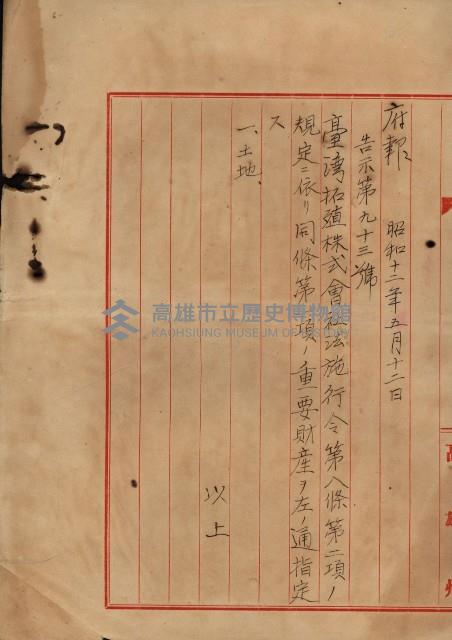 府報 昭和十二年五月十二日
告示第九十三號
臺灣拓殖株式會社法施行令第八條第二項ノ
規定ニ依リ同條第一項ノ重要財産ヲ左ノ通指定
ス
一、土地、
以上
高雄州
高雄市立歷史博物館
KAOHSIUNG MUSEUM OF HISTORY